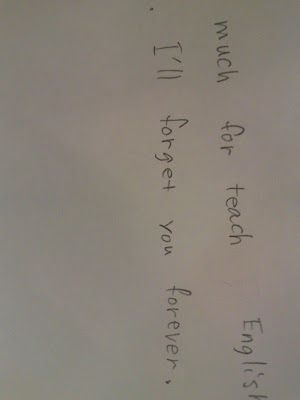 much for teach English
. I'll forget you forever.